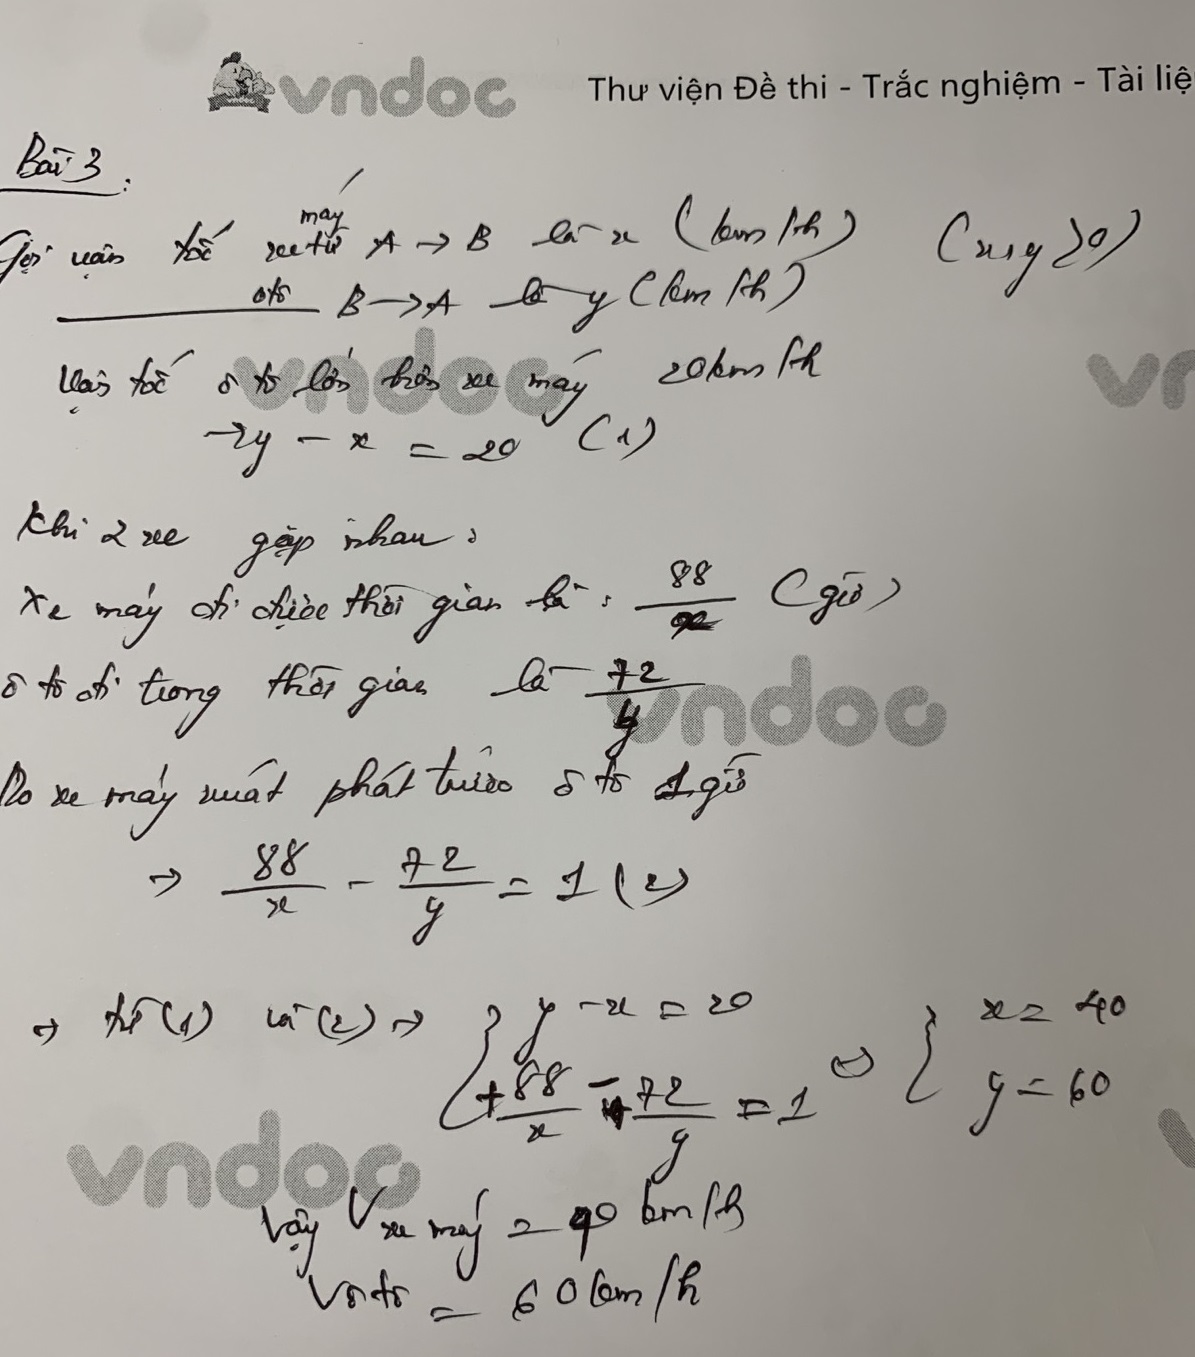 vndoc Thư viện Đề thi - Trắc nghiệm - Tài liệ
Bài 3:
Gọi vận tốc xe máy từ A → B là x (km/h) (x, y > 0)
ôtô B → A là y (km/h)
Vận tốc ô tô lớn hơn xe máy 20km/h
→ y - x = 20 (1)
Khi 2 xe gặp nhau:
Xe máy đi được thời gian là: 88/x (giờ)
ô tô đi trong thời gian là 72/y
Do xe máy xuất phát trước ô tô 1 giờ
→ 88/x - 72/y = 1 (2)
→ từ (1) và (2) → { y - x = 20
+ 88/x - 72/y = 1 ⇔ { x = 40
y = 60
Vậy V xe máy = 40 km/h
V ô tô = 60 km/h
vndoc
vn
vndoc
vndoc